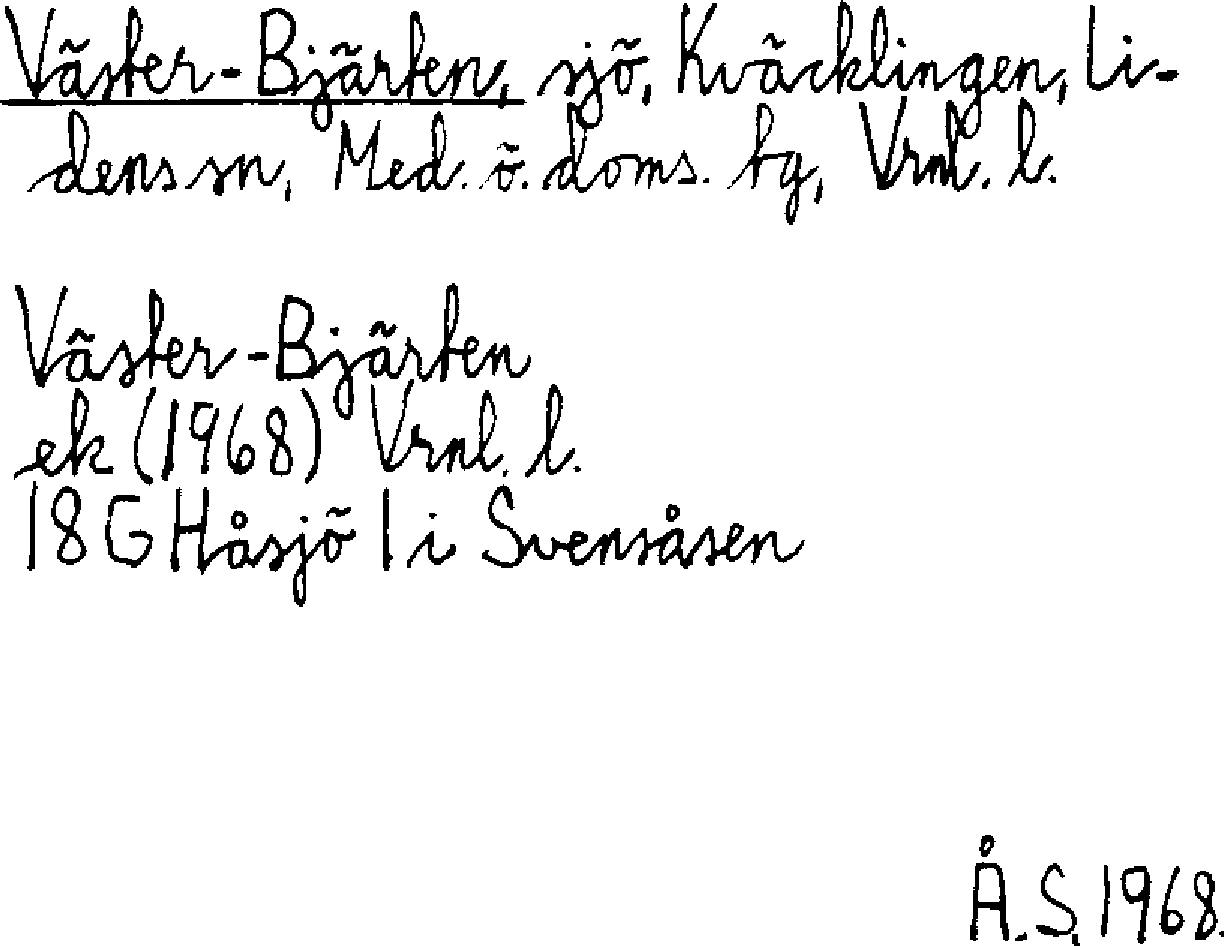 Väster-Bjärten, sjö, Kväcklingen, Li-
dens sn, Med. ö. doms. tg, Vrnl. l.
Väster-Bjärten
ek (1968) Vrnl. l.
18 G Håsjö 1 i Svensåsen
Å. S. 1968.